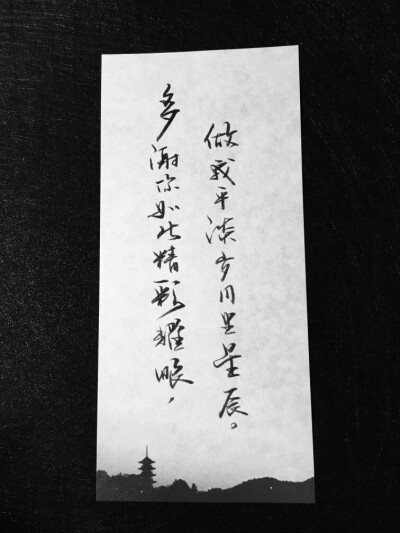 多谢你如此精彩耀眼，
做我平淡岁月里星辰。